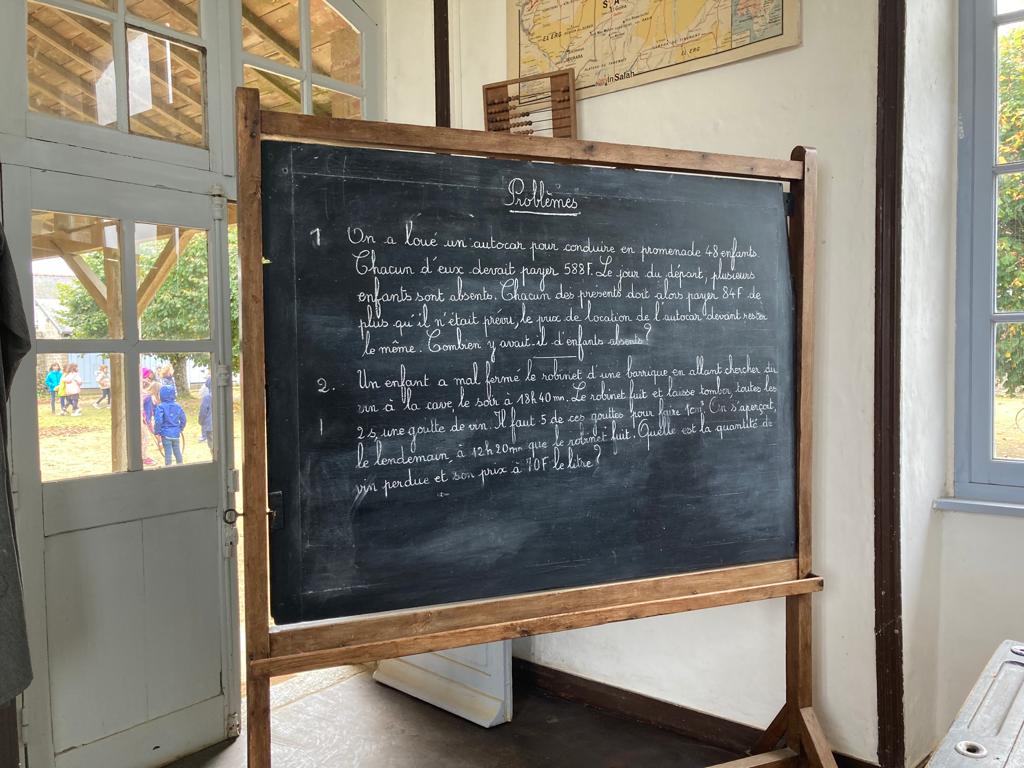 In Salah
EL ERG
Problèmes
1 On a loué un autocar pour conduire en promenade 48 enfants.
Chacun d'eux devait payer 588F. Le jour du départ, plusieurs
enfants sont absents. Chacun des présents doit alors payer 84F de
plus qu'il n'était prévu, le prix de location de l'autocar devant rester
le même. Combien y avait-il d'enfants absents?
2. Un enfant a mal fermé le robinet d'une barrique, en allant chercher du
vin à la cave, le soir à 18h40mn. Le robinet fuit et laisse tomber, toutes les
2s, une goutte de vin. Il faut 5 de ces gouttes pour faire 1cm³. On s'aperçoit,
le lendemain, à 12h20mn que le robinet fuit. Quelle est la quantité de
vin perdue et son prix à 10F le litre?